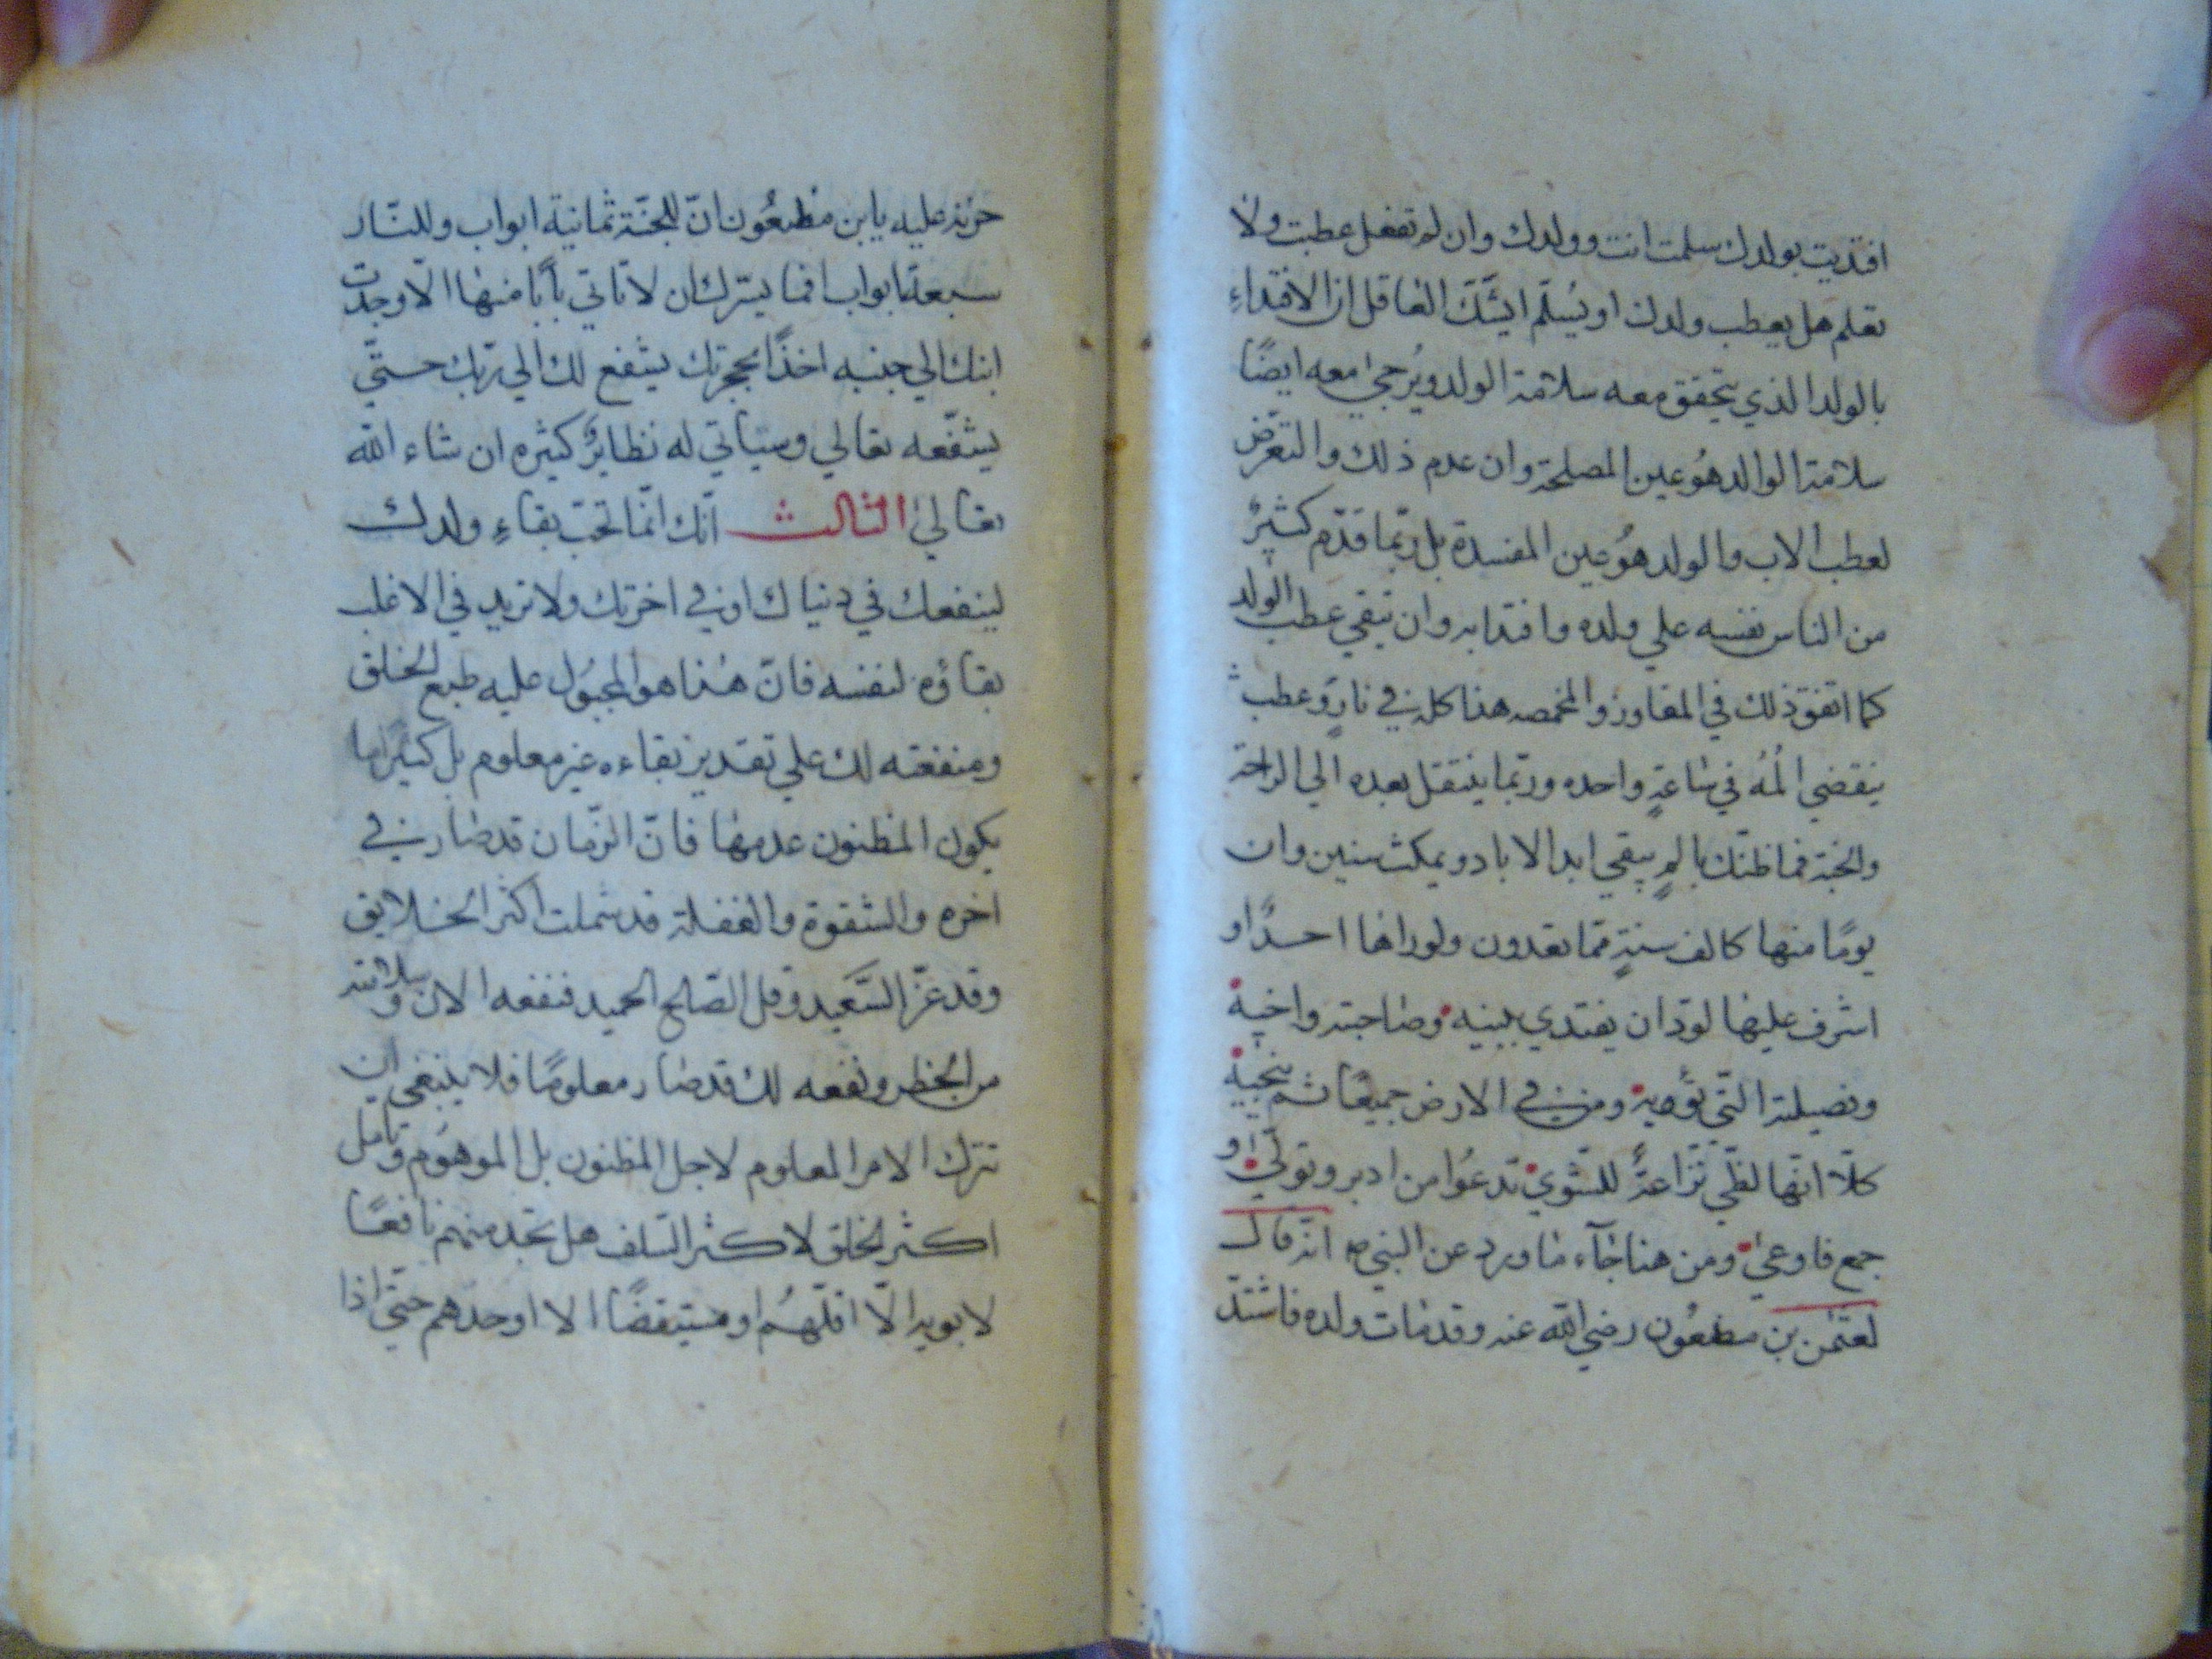 افتديت بولدك سلمت انت وولدك وان لم تفعل عطبت ولا
تعلم هل يعطب ولدك او يسلم ايشك العاقل ان الافتداء
بالولد الذي يتحقق معه سلامة الولد ويرجي معه ايضًا
سلامة الوالد هو عين المصلحة وان عدم ذلك والتعرّض
لعطب الاب والولد هو عين المفسدة بل ربّما قدّم كثيرٌ
من الناس نفسه علي ولده وافتدا به وان تيقي عطب الولد
كما اتفق ذلك في المفاوز والمخمصه هذا كله في نارٍ وعطب
ينقضي المُه في ساعةٍ واحده وربّما ينتقل بعده الي الراحة
والجنة فما ظنّك بالمٍ يبقي ابد الاباد ويمكث سنين وان
يومًا منها كالف سنةٍ ممّا تعدون ولوراها احدًا او
اشرف عليها لودّ ان يفتدي ببنيه وصاحبته واخيه
وفصيلته التّي تؤويه ومن في الارض جميعًا ثم ينجيه
كلّا انّها لظّي نزّاعةً للشّوي تدعُوا من ادبر وتولّي او
جمع فاوعي ومن هنا جآء ما ورد عن النبي ص انّه قال
لعثمن بن مظعُون رضي الله عنه وقد مات ولده فاشتدّ
حزنه عليه يا بن مظعُون انّ للجنّة ثمانية ابواب وللنّار
سبعة ابواب افما يسرّك ان لا تاتي بابًا منها الّا وجدت
ابنك الي جنبه اخذًا بحجزتك يشفع لك الي ربّك حتّي
يشفّعه تعالي وسياتي له نظاير كثيره ان شاء الله
تعالي الثالث انّك انّما تحبّ بقاء ولدك
لينفعك في دنياك او في اخرتك ولا تريد في الاغلب
بقاؤه لنفسه فانّ هذا هو المجبُول عليه طبع الخلق
ومنفعته لك علي تقدير بقاءه غير معلوم بل كثيرًا ما
يكون المظنون عدمها فانّ الزّمان قد صار في
اخره والشقوة والغفلة قد شملت اكثر الخلايق
وقد عزّ السَّعيد وقل الصّالح الحميد فنفعه الان وسلامته
من الخطر ونفعه لك قد صار معلومًا فلا ينبغي ان
تترك الامر المعلوم لاجل المظنون بل الموهوم وتامل
اكثر الخلق لاكثر السّلف هل تجد منهم نافعًا
لابويه الّا اقلّهُم او مستيقضًا الا اوحدهم حتّي اذا